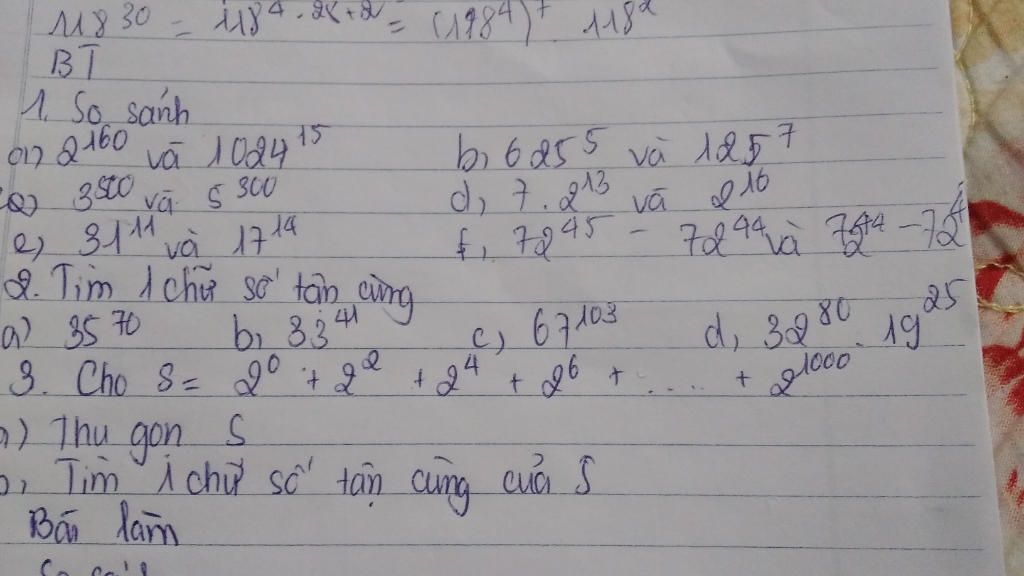 118^30 = 118^4.2(+2 = (118^4)^7 118^2
BT
1. So sánh
a) 2^160 và 1024^15 b, 625^5 và 125^7
3^500 và 5^300 d, 7.2^13 và 2^16
e) 31^11 và 17^14 f, 72^45 - 72^44 và 72^44 - 72
2. Tìm 1 chữ số tận cùng
a) 35^70 b, 33^41 c, 67^103 d, 32^80 . 19^25
3. Cho S = 2^0 + 2^2 + 2^4 + 2^6 + ..... + 2^1000
a) Thu gọn S
b, Tìm 1 chữ số tận cùng của S
Bài làm